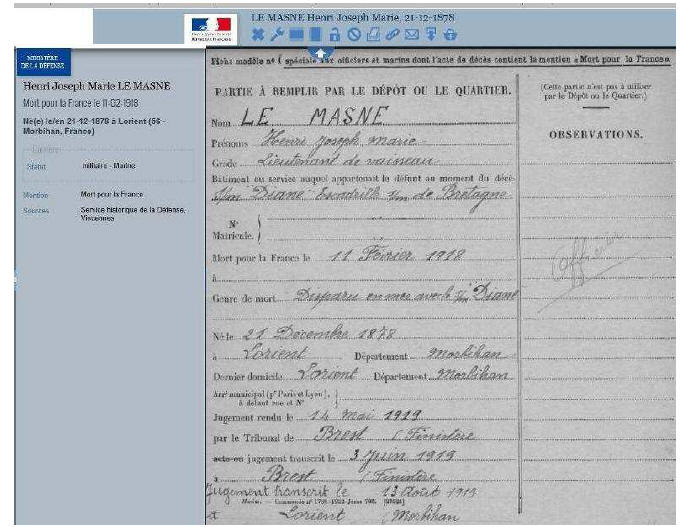 LE MASNE Henri Joseph Marie, 21-12-1878
MINISTÈRE
DE LA DÉFENSE
Henri Joseph Marie LE MASNE
Mort pour la France le 11-02-1918
Né(e) le/en 21-12-1878 à Lorient (56 -
Morbihan, France)
Statut militaire - Marine
Mention Mort pour la France
Sources Service historique de la Défense,
Vincennes
Hors modèle nº spéciale aux officiers et marins dont l'acte de décès contient la mention « Mort pour la France »
PARTIE À REMPLIR PAR LE DÉPÔT OU LE QUARTIER.
Nom LE MASNE
Prénoms Henri Joseph Marie
Grade Lieutenant de vaisseau
Bâtiment ou service auquel appartenait le défunt au moment du décès
S/m "Diane" Escadrille S/m de Bretagne
Nº
Matricule.
Mort pour la France le 11 Février 1918
à
Genre de mort Disparu en mer avec le S/m Diane
Né le 21 Décembre 1878
à Lorient Département Morbihan
Dernier domicile Lorient Département Morbihan
Arrt municipal (pr Paris et Lyon),
à défaut rue et Nº
Jugement rendu le 14 mai 1919
par le Tribunal de Brest (Finistère
acte ou jugement transcrit le 3 Juin 1919
à Brest (Finistère
Jugement transcrit le 13 Août 1919
et Lorient (Morbihan
(Cette partie n'est pas à utiliser
par le Dépôt ou le Quartier.)
OBSERVATIONS.